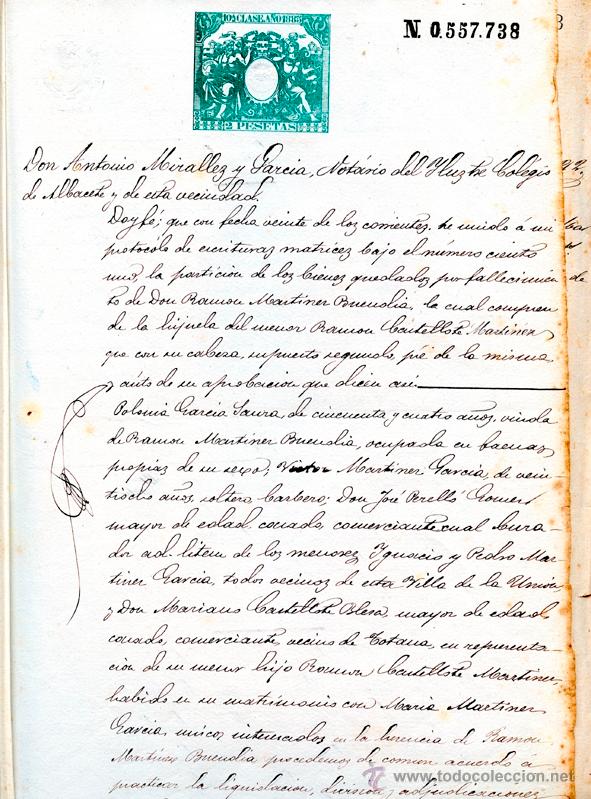 10ª CLASE. AÑO 188
2 PESETAS
N. 0.557.738
Don Antonio Mirallez y Garcia, Notário del Ilustre Colégio
de Albacete y de esta vecindad.
Doy fé; que con fecha veinte de los corrientes, he unido á mi
protocolo de escrituras matrices bajo el número ciento
uno, la particion de los bienes quedados por fallecimien
to de Don Ramon Martinez Buendia, la cual compren
de la hijuela del menor Ramon Castellote Martinez,
que con su cabeza, supuesto segundo, pié de la misma,
y auto de su aprobacion que dicen asi
Polonia Garcia Saura, de cincuenta y cuatro años, viuda
de Ramon Martinez Buendia, ocupada en faenas
propias de su sexo; Victor Martinez Garcia, de vein-
tiocho años, soltero barbero; Don José Perelló Gomez
mayor de edad, casado, comerciante cual Cura-
dor ad litem de los menores Ignacio y Pedro Mar-
tinez Garcia, todos vecinos de esta Villa de la Union,
y Don Mariano Castellote Blesa, mayor de edad,
casado, comerciante vecino de Totana, en representa-
cion de su menor hijo Ramon Castellote Martinez,
habido en su matrimonio con Maria Martinez
Garcia, unicos interesados en la herencia de Ramon
Martinez Buendia procedemos de comun acuerdo á
practicar la liquidacion, division, adjudicaciones
www.todocoleccion.net